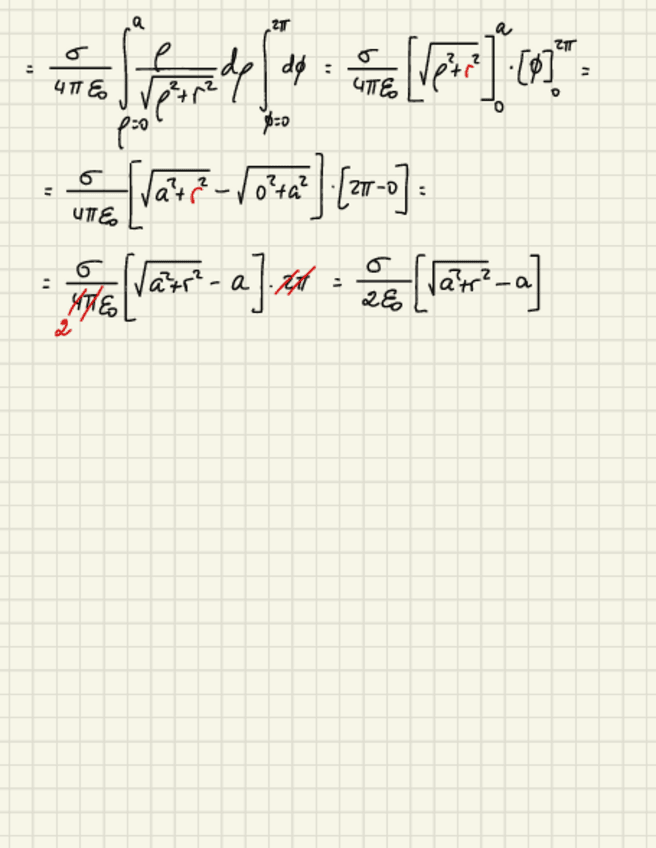 = σ/(4πε₀) ∫_{ρ=0}^{a} ρ/√(ρ²+r²) dρ ∫_{ϕ=0}^{2π} dϕ = σ/(4πε₀) [√(ρ²+r²)]_0^a · [ϕ]_0^{2π} =
= σ/(4πε₀) [√(a²+r²) − √(0²+a²)] · [2π−0] =
= σ/(4πε₀) [√(a²+r²) − a] · 2π = σ/(2ε₀) [√(a²+r²) − a]
2